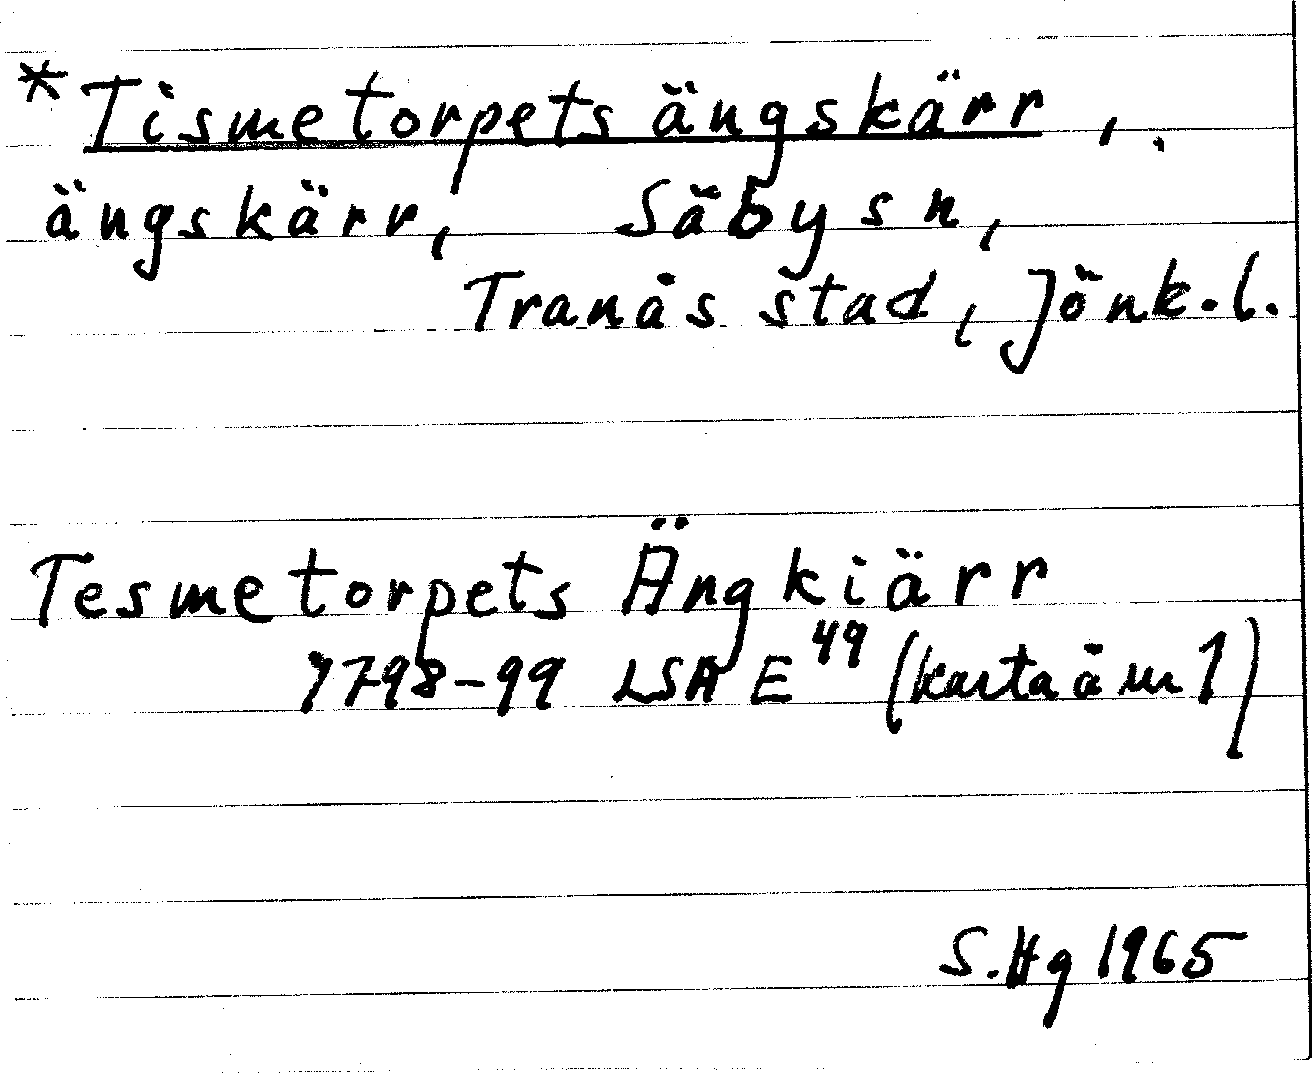 * Tismetorpets ängskärr,
ängskärr, Säby sn,
Tranås stad, Jönk. l.
Tesmetorpets Ängkiärr
1798-99 LSA E⁴⁹ (karta äm 1)
S.Hg 1965